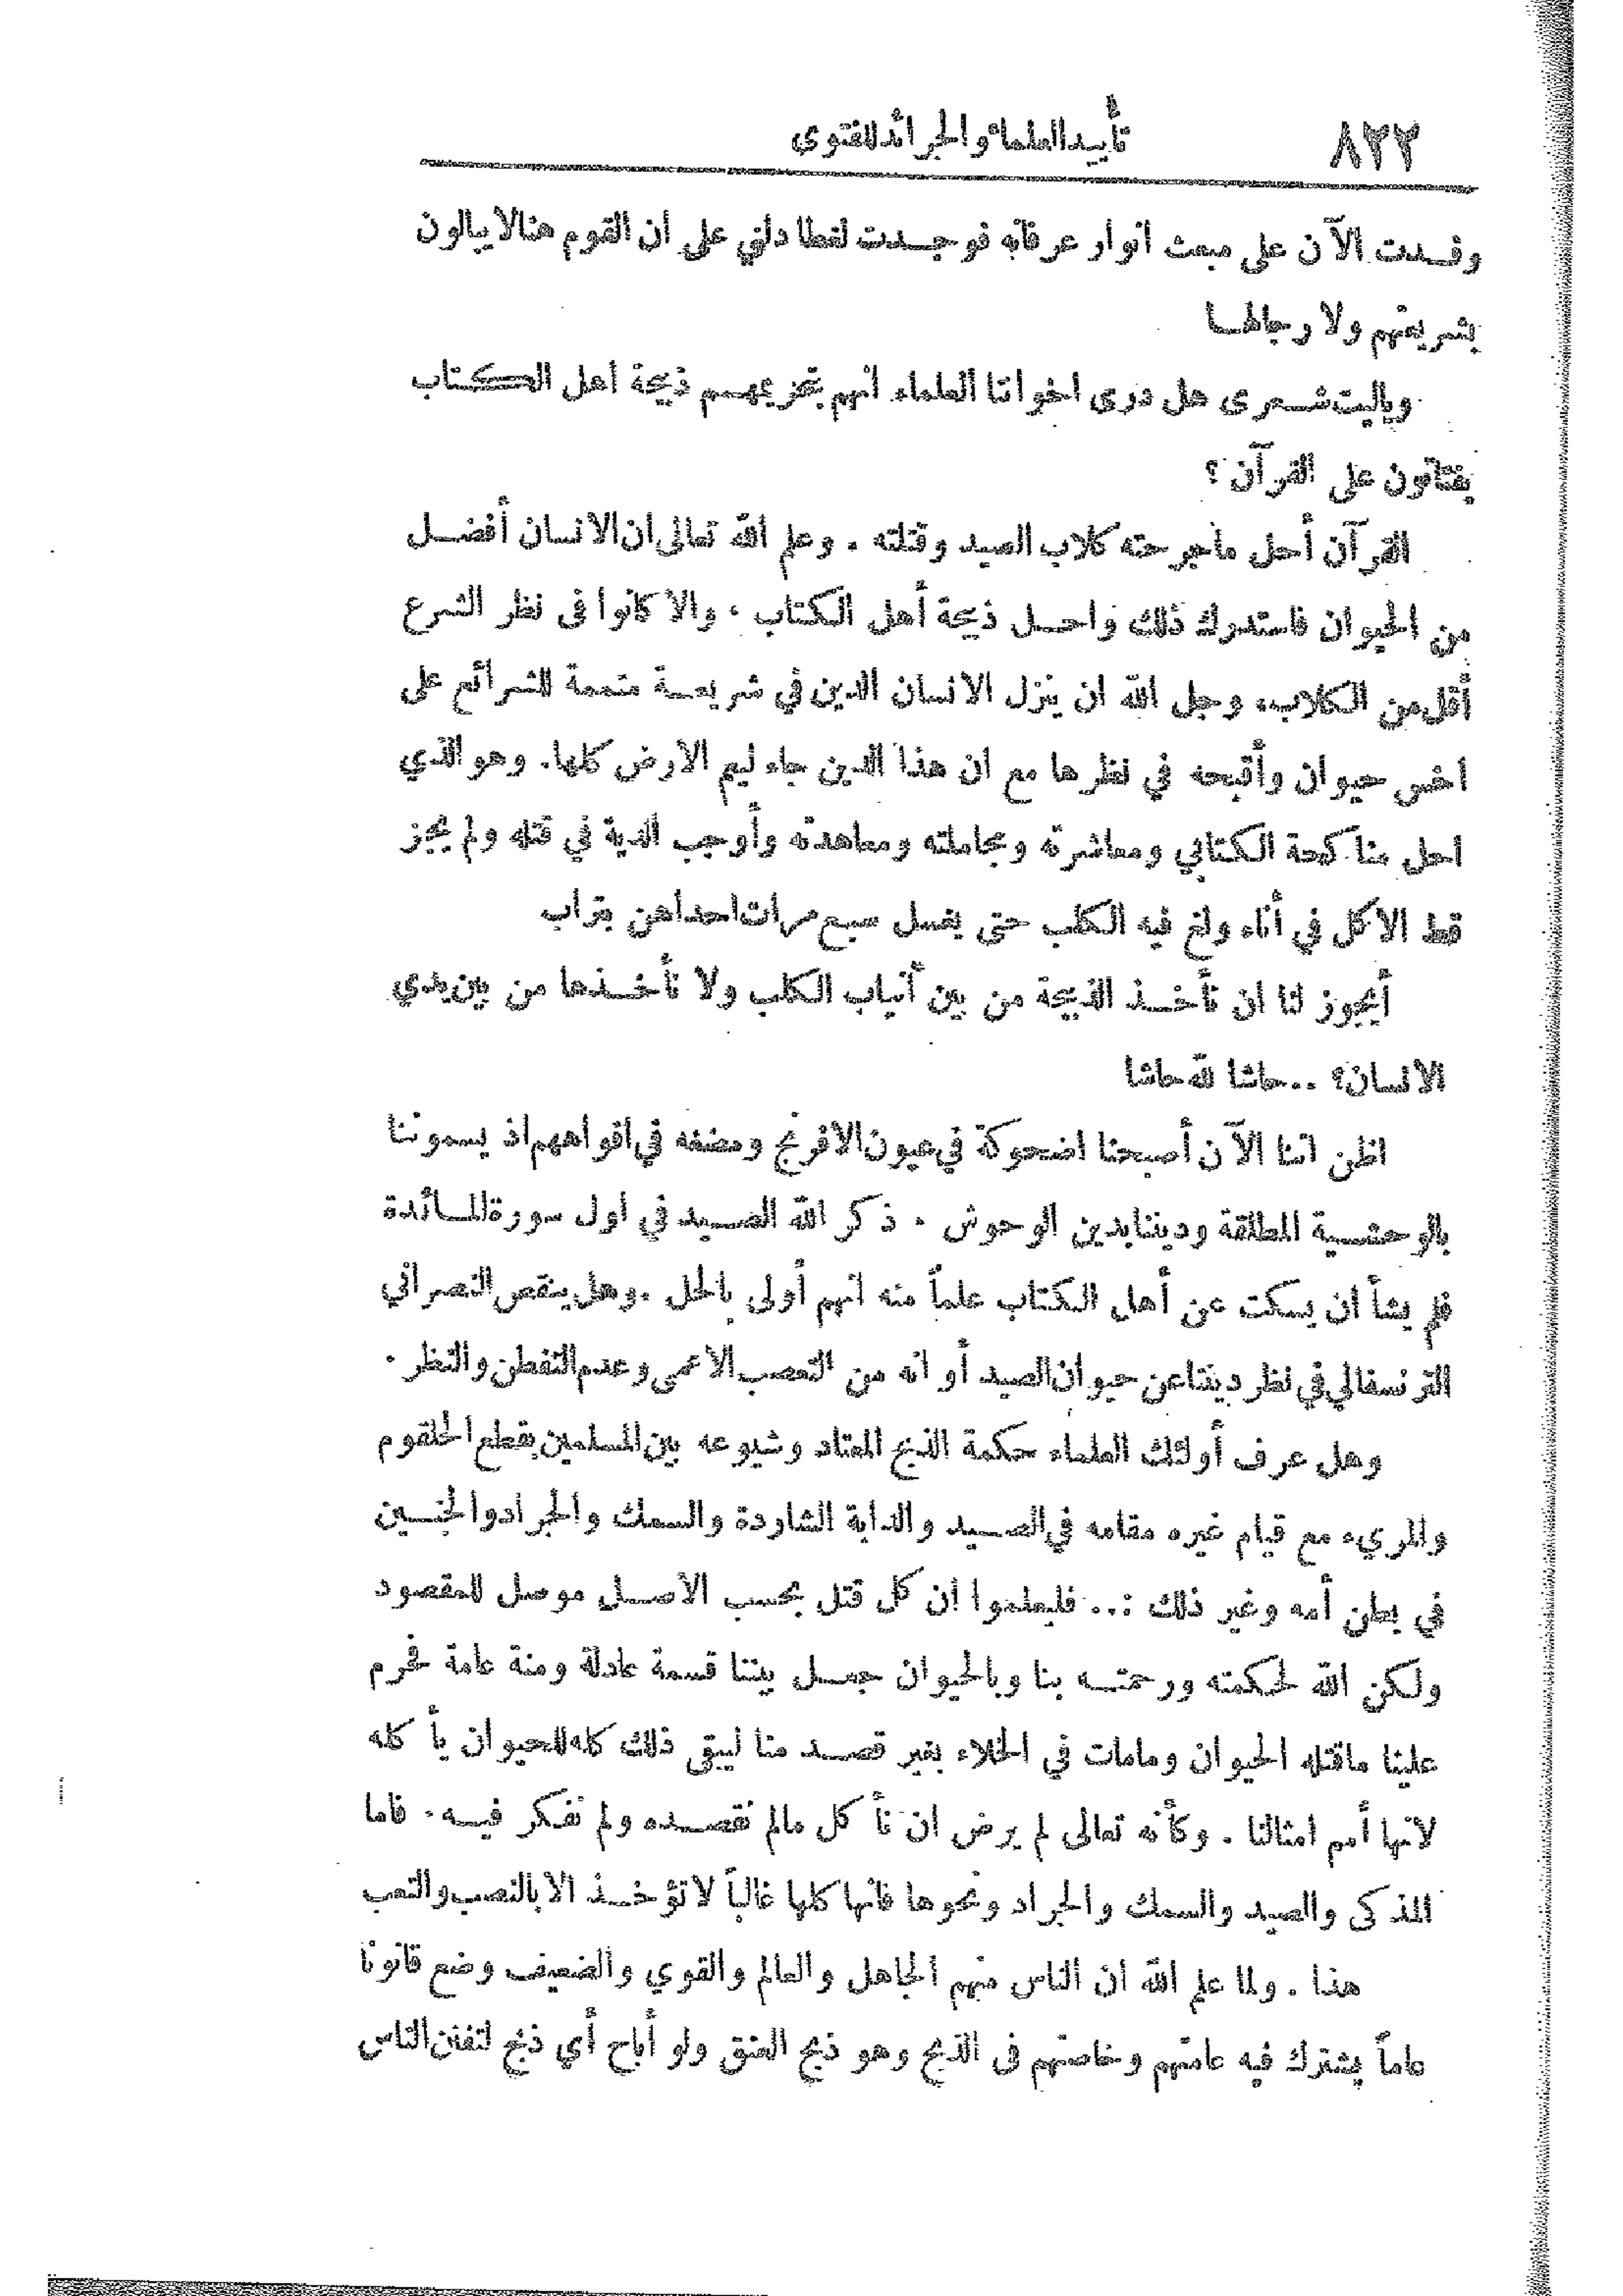 ٨٢٢ تأييد العلماء والجرائد للفتوى
وفدت الآن على مبعث انوار عرفانه فوجدت لغطا دلني على ان القوم هنا لا يبالون
بشريعتهم ولا رجالها
وياليت شعرى هل درى اخواننا العلماء انهم بتحريمهم ذبيحة أهل الكتاب
يفتاتون على القرآن ؟
القرآن أحل ماجرحته كلاب الصيد وقتلته . وعلم الله تعالى ان الانسان أفضل
من الحيوان فاستدرك ذلك واحل ذبيحة أهل الكتاب . والا كانوا فى نظر الشرع
أقل من الكلاب، وجل الله ان ينزل الانسان الدين في شريعة متممة للشرائع على
اخس حيوان وأقبحه في نظرها مع ان هذا الدين جاء ليعم الارض كلها. وهو الذي
احل مناكحة الكتابي ومعاشرته ومجاملته ومعاهدته وأوجب الدية في قتله ولم يجز
قط الاكل في أناء ولغ فيه الكلب حتى يغسل سبع مرات احداهن بتراب
أيجوز لنا ان نأخذ الذبيحة من بين أنياب الكلب ولا نأخذها من بين يدي
الانسان؟ ..حاشا لله حاشا
اظن اننا الآن أصبحنا اضحوكة في عيون الافرنج ومضغه في افواههم اذ يسموننا
بالوحشية المطلقة وديننا بدين الوحوش . ذكر الله الصيد في أول سورة المائدة
فلم يشأ ان يسكت عن أهل الكتاب علماً منه انهم أولى بالحل .وهل ينقص النصراني
الترنسفالي في نظر ديننا عن حيوان الصيد أو انه من التعصب الاعمى وعدم التفطن والنظر .
وهل عرف أولئك العلماء حكمة الذبح المعتاد وشيوعه بين المسلمين بقطع الحلقوم
والمريء مع قيام غيره مقامه في الصيد والدابة الشاردة والسمك والجراد والجنين
في بطن أمه وغير ذلك :.. فليعلموا ان كل قتل بحسب الاصل موصل للمقصود
ولكن الله لحكمته ورحمته بنا وبالحيوان جعل بيننا قسمة عادلة ومنة عامة فحرم
علينا ماقتله الحيوان ومامات في الخلاء بغير قصد منا ليبقى ذلك كله للحيوان يأكله
لانها أمم امثالنا . وكأنه تعالى لم يرض ان نأكل مالم نقصده ولم نفكر فيه . فاما
المذكى والصيد والسمك والجراد ونحوها فانها كلها غالباً لا تؤخذ الا بالنصب والتعب
هذا . ولما علم الله ان الناس منهم الجاهل والعالم والقوي والضعيف وضع قانونا
عاماً يشترك فيه عامتهم وخاصتهم فى الذبح وهو ذبح العنق ولو أباح أي ذبح لتفنن الناس